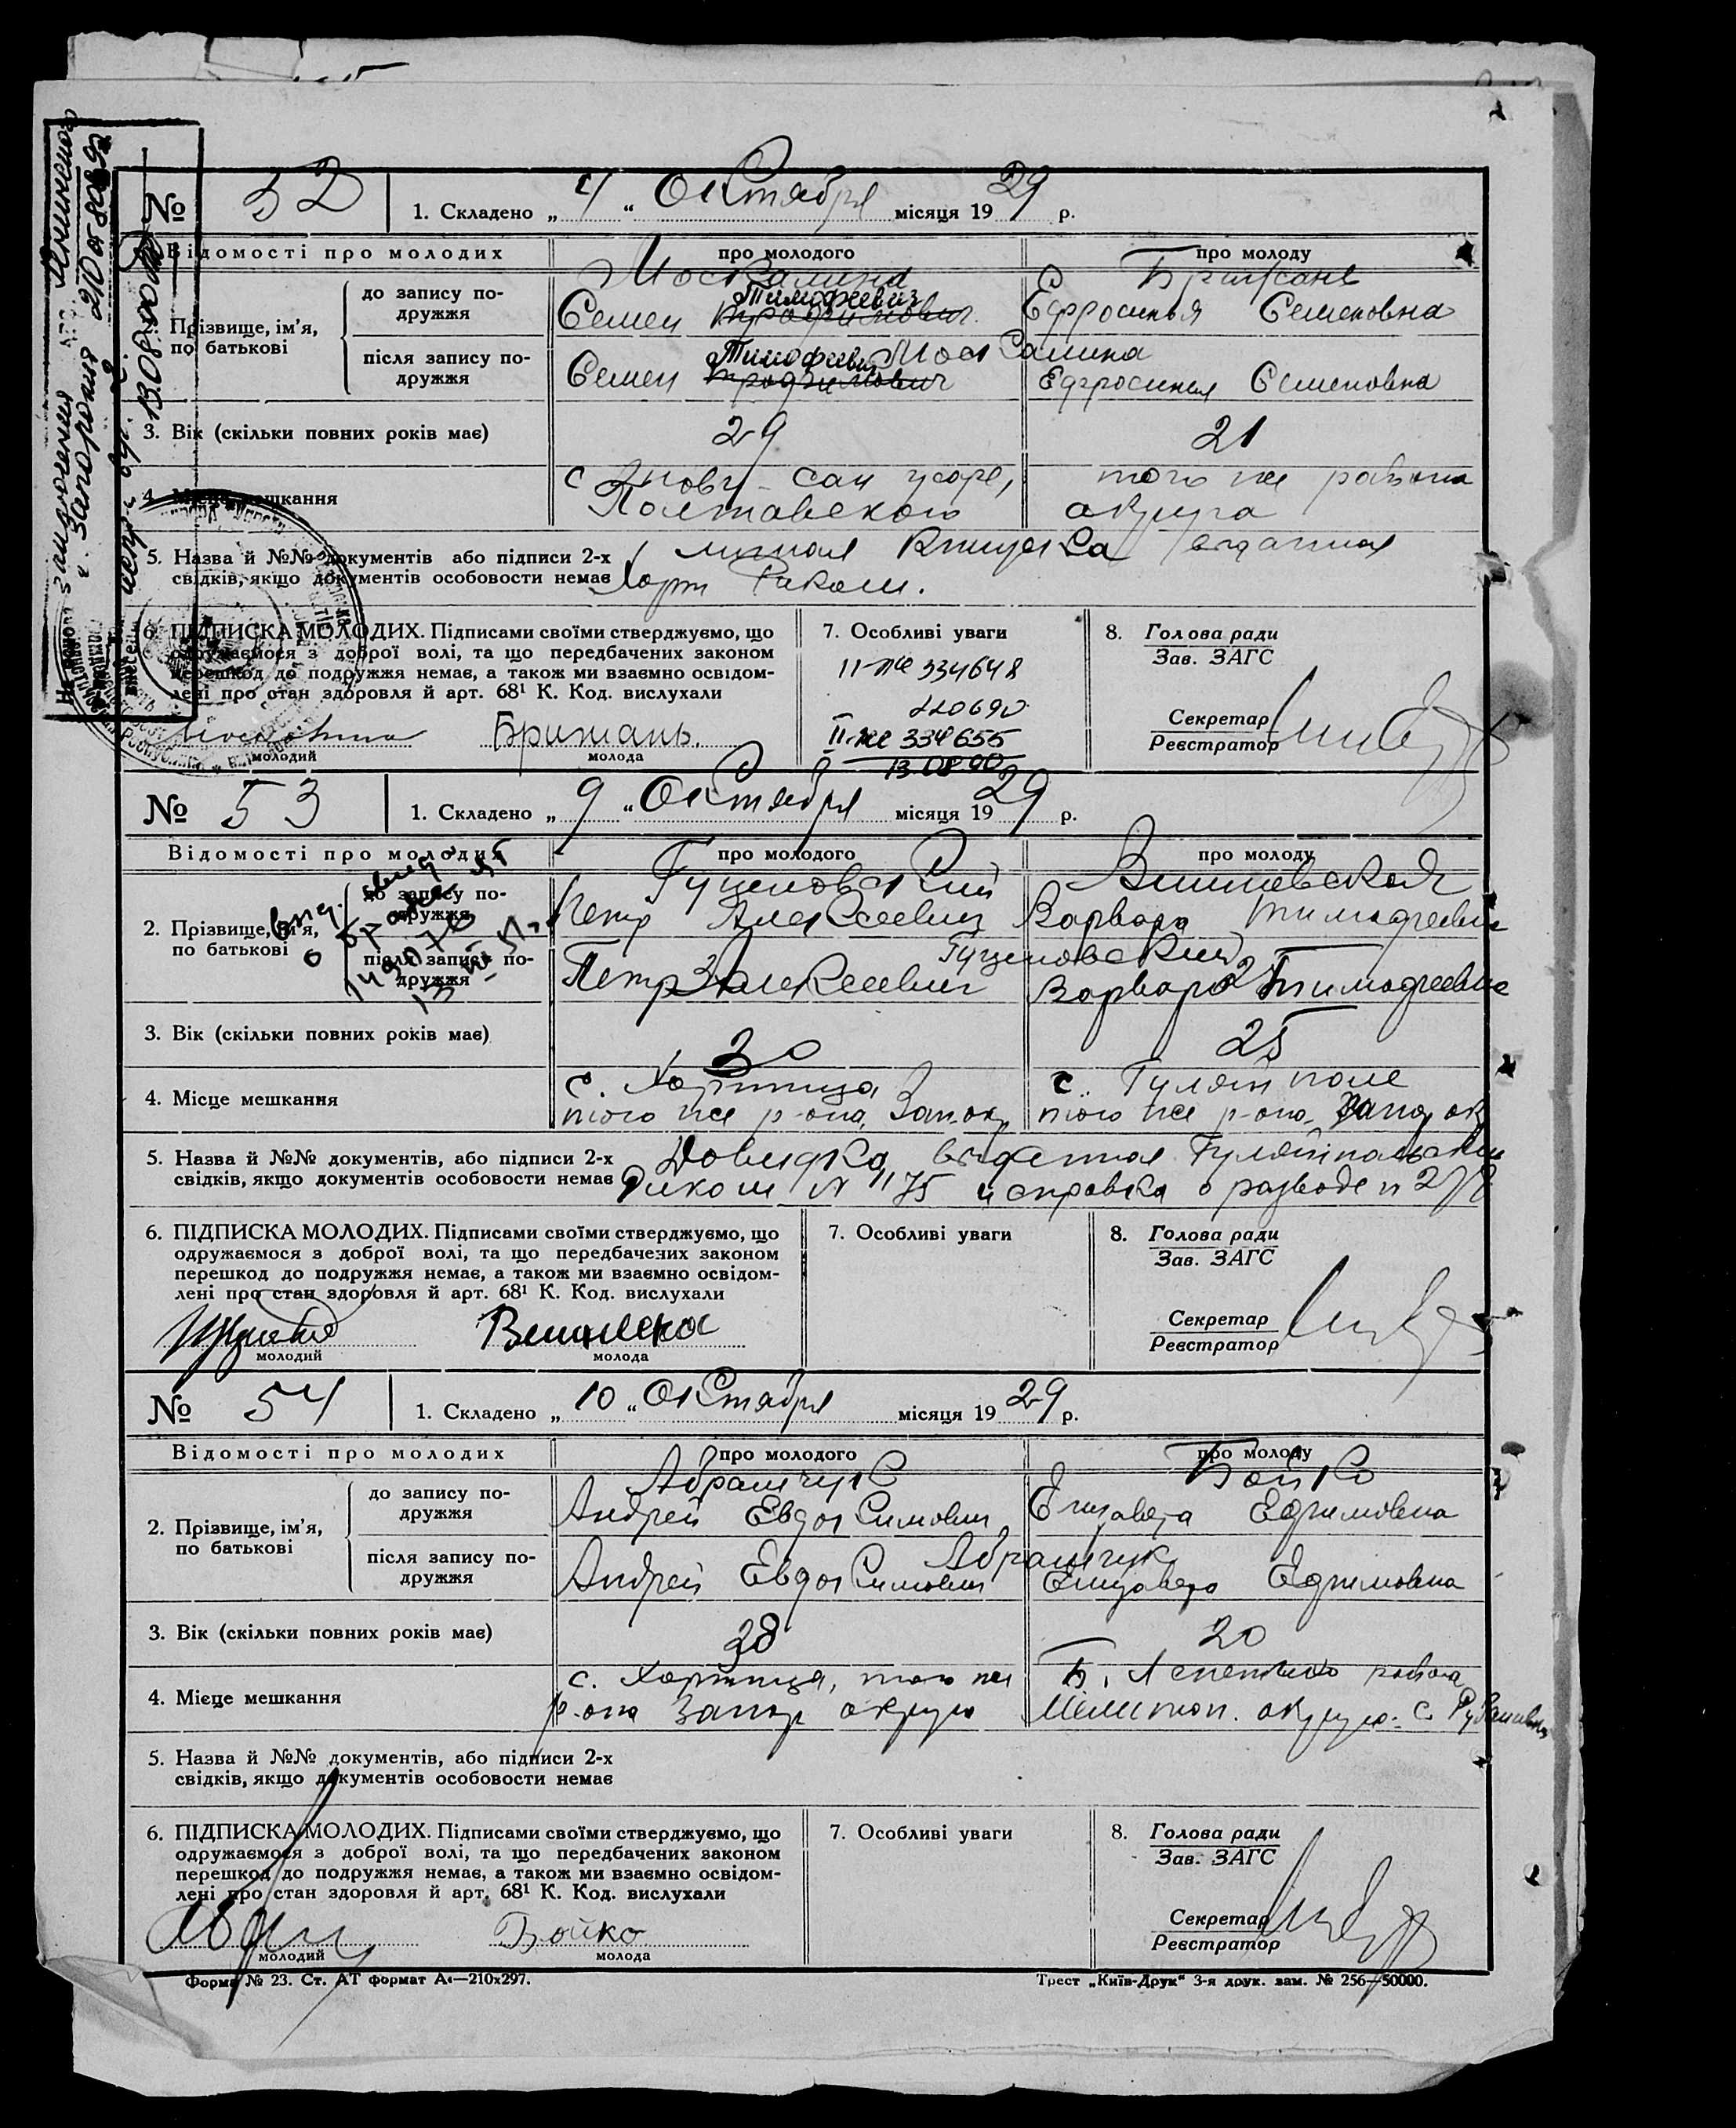 № 52
1. Складено „ 4 “ Октября місяця 19 29 р.
Відомості про молодих
про молодого
про молоду
2. Прізвище, ім’я, по батькові
до запису подружжя
Москалина
Семен Тимофеевич
Ефросинья Семеновна
після запису подружжя
Москалина
Семен Тимофеевич
Ефросиния Семеновна
3. Вік (скільки повних років має)
29
21
4. Місце мешкання
Полтавского
того же района
округа
5. Назва й №№ документів або підписи 2-х
свідків, якщо документів особовости немає
Риком.
6. ПІДПИСКА МОЛОДИХ. Підписами своїми стверджуємо, що
одружаємося з доброї волі, та що передбачених законом
перешкод до подружжя немає, а також ми взаємно освідом-
лені про стан здоровля й арт. 68¹ К. Код. вислухали
молодий
Брижань.
молода
7. Особливі уваги
II-же 334648
220690
II-же 334655
13.08.90
8. Голова ради
Зав. ЗАГС
Секретар
Реєстратор
№ 53
1. Складено „ 9 “ Октября місяця 19 29 р.
Відомості про молодих
про молодого
про молоду
2. Прізвище, ім’я,
по батькові
до запису по-
дружжя
Вишневская
Петр Алексеевич
Варвара Тимофеевна
після запису по-
дружжя
Петр Алексеевич
Варвара Тимофеевна
3. Вік (скільки повних років має)
30
25
4. Місце мешкання
с. Хортица
того же р-она, Зап. окр
с. Гуляй поле
того же р-она, Запор ок
5. Назва й №№ документів, або підписи 2-х
свідків, якщо документів особовости немає
Довидка, выданная Гуляйпольским
Риком N 1175 и справка о разводе N
6. ПІДПИСКА МОЛОДИХ. Підписами своїми стверджуємо, що
одружаємося з доброї волі, та що передбачених законом
перешкод до подружжя немає, а також ми взаємно освідом-
лені про стан здоровля й арт. 68¹ К. Код. вислухали
молодий
молода
7. Особливі уваги
8. Голова ради
Зав. ЗАГС
Секретар
Реєстратор
№ 54
1. Складено „ 10 “ Октября місяця 19 29 р.
Відомості про молодих
про молодого
про молоду
2. Прізвище, ім’я,
по батькові
до запису по-
дружжя
Абрамчук
Бойко
Андрей Евдокимович
Елизавета Ефимовна
після запису по-
дружжя
Абрамчук
Андрей Евдокимович
Елизавета Ефимовна
3. Вік (скільки повних років має)
28
20
4. Місце мешкання
с. Хортица, того же
р-она Запор округа
Б. Лепетихо района
Мелитоп. округа с.
5. Назва й №№ документів, або підписи 2-х
свідків, якщо документів особовости немає
6. ПІДПИСКА МОЛОДИХ. Підписами своїми стверджуємо, що
одружаємося з доброї волі, та що передбачених законом
перешкод до подружжя немає, а також ми взаємно освідом-
лені про стан здоровля й арт. 68¹ К. Код. вислухали
молодий
Бойко
молода
7. Особливі уваги
8. Голова ради
Зав. ЗАГС
Секретар
Реєстратор
Форма № 23. Ст. АТ формат А4—210х297.
Трест „Київ-Друк“ 3-я друк. зам. № 256—50000.